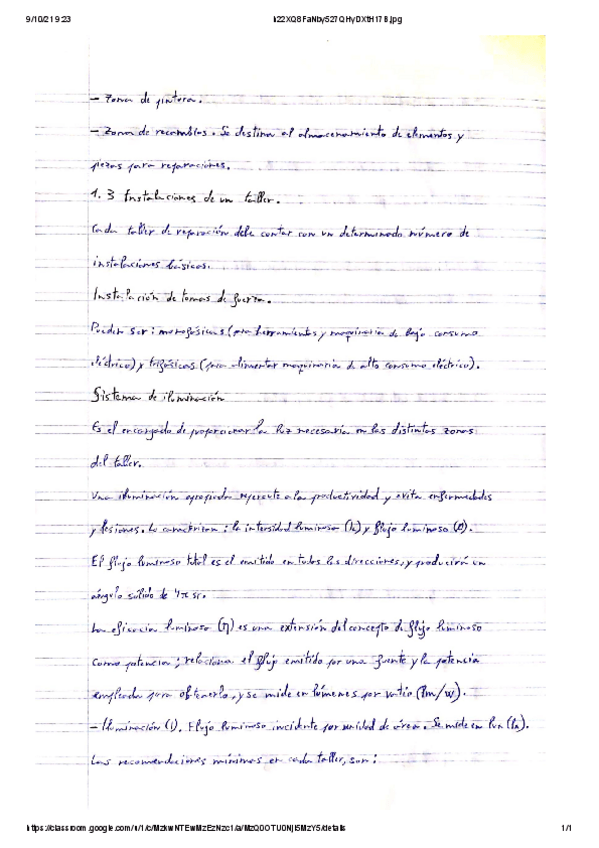 9/10/21 9:23
- Zona de pintura.
- Zona de recambios. Se destina al almacenamiento de elementos y
piezas para reparaciones.
1.3 Instalaciones de un taller.
Cada taller de reparación debe contar con un determinado número de
instalaciones básicas.
Instalación de tomas de fuerza.
Pueden ser: monofásicas (para herramientas y maquinaria de bajo consumo
eléctrico) y trifásicas (para alimentar maquinaria de alto consumo eléctrico).
Sistema de iluminación
Es el encargado de proporcionar la luz necesaria en las distintas zonas
del taller.
Una iluminación apropiada repercute a la productividad y evita enfermedades
y lesiones. Lo caracterizan: la intensidad luminosa y flujo luminoso
El flujo luminoso total es el emitido en todas las direcciones, y producirá un
ángulo sólido de 4π sr.
La eficacia luminosa (η) es una extensión del concepto de flujo luminoso
como potencia; relaciona el flujo emitido por una fuente y la potencia
empleada para obtenerlo, y se mide en lúmenes por vatio (lm/w).
- Iluminación (I). Flujo luminoso incidente por unidad de área. Se mide en lux (lx).
Las recomendaciones mínimas en cada taller, son:
1/1